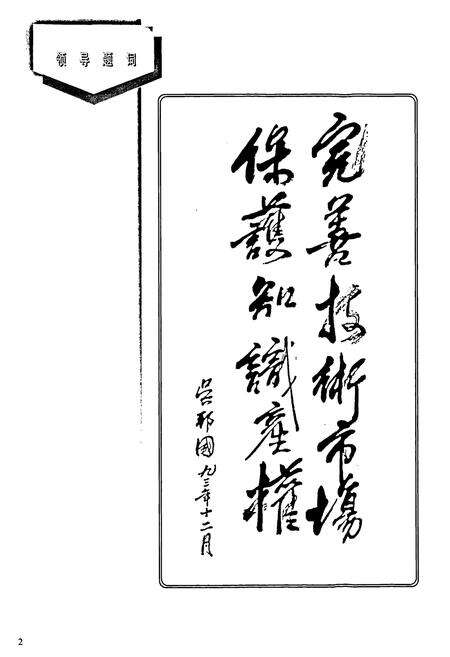 领导题词
完善技術市場
保護知識産權
吴邦國 九三年十二月
2